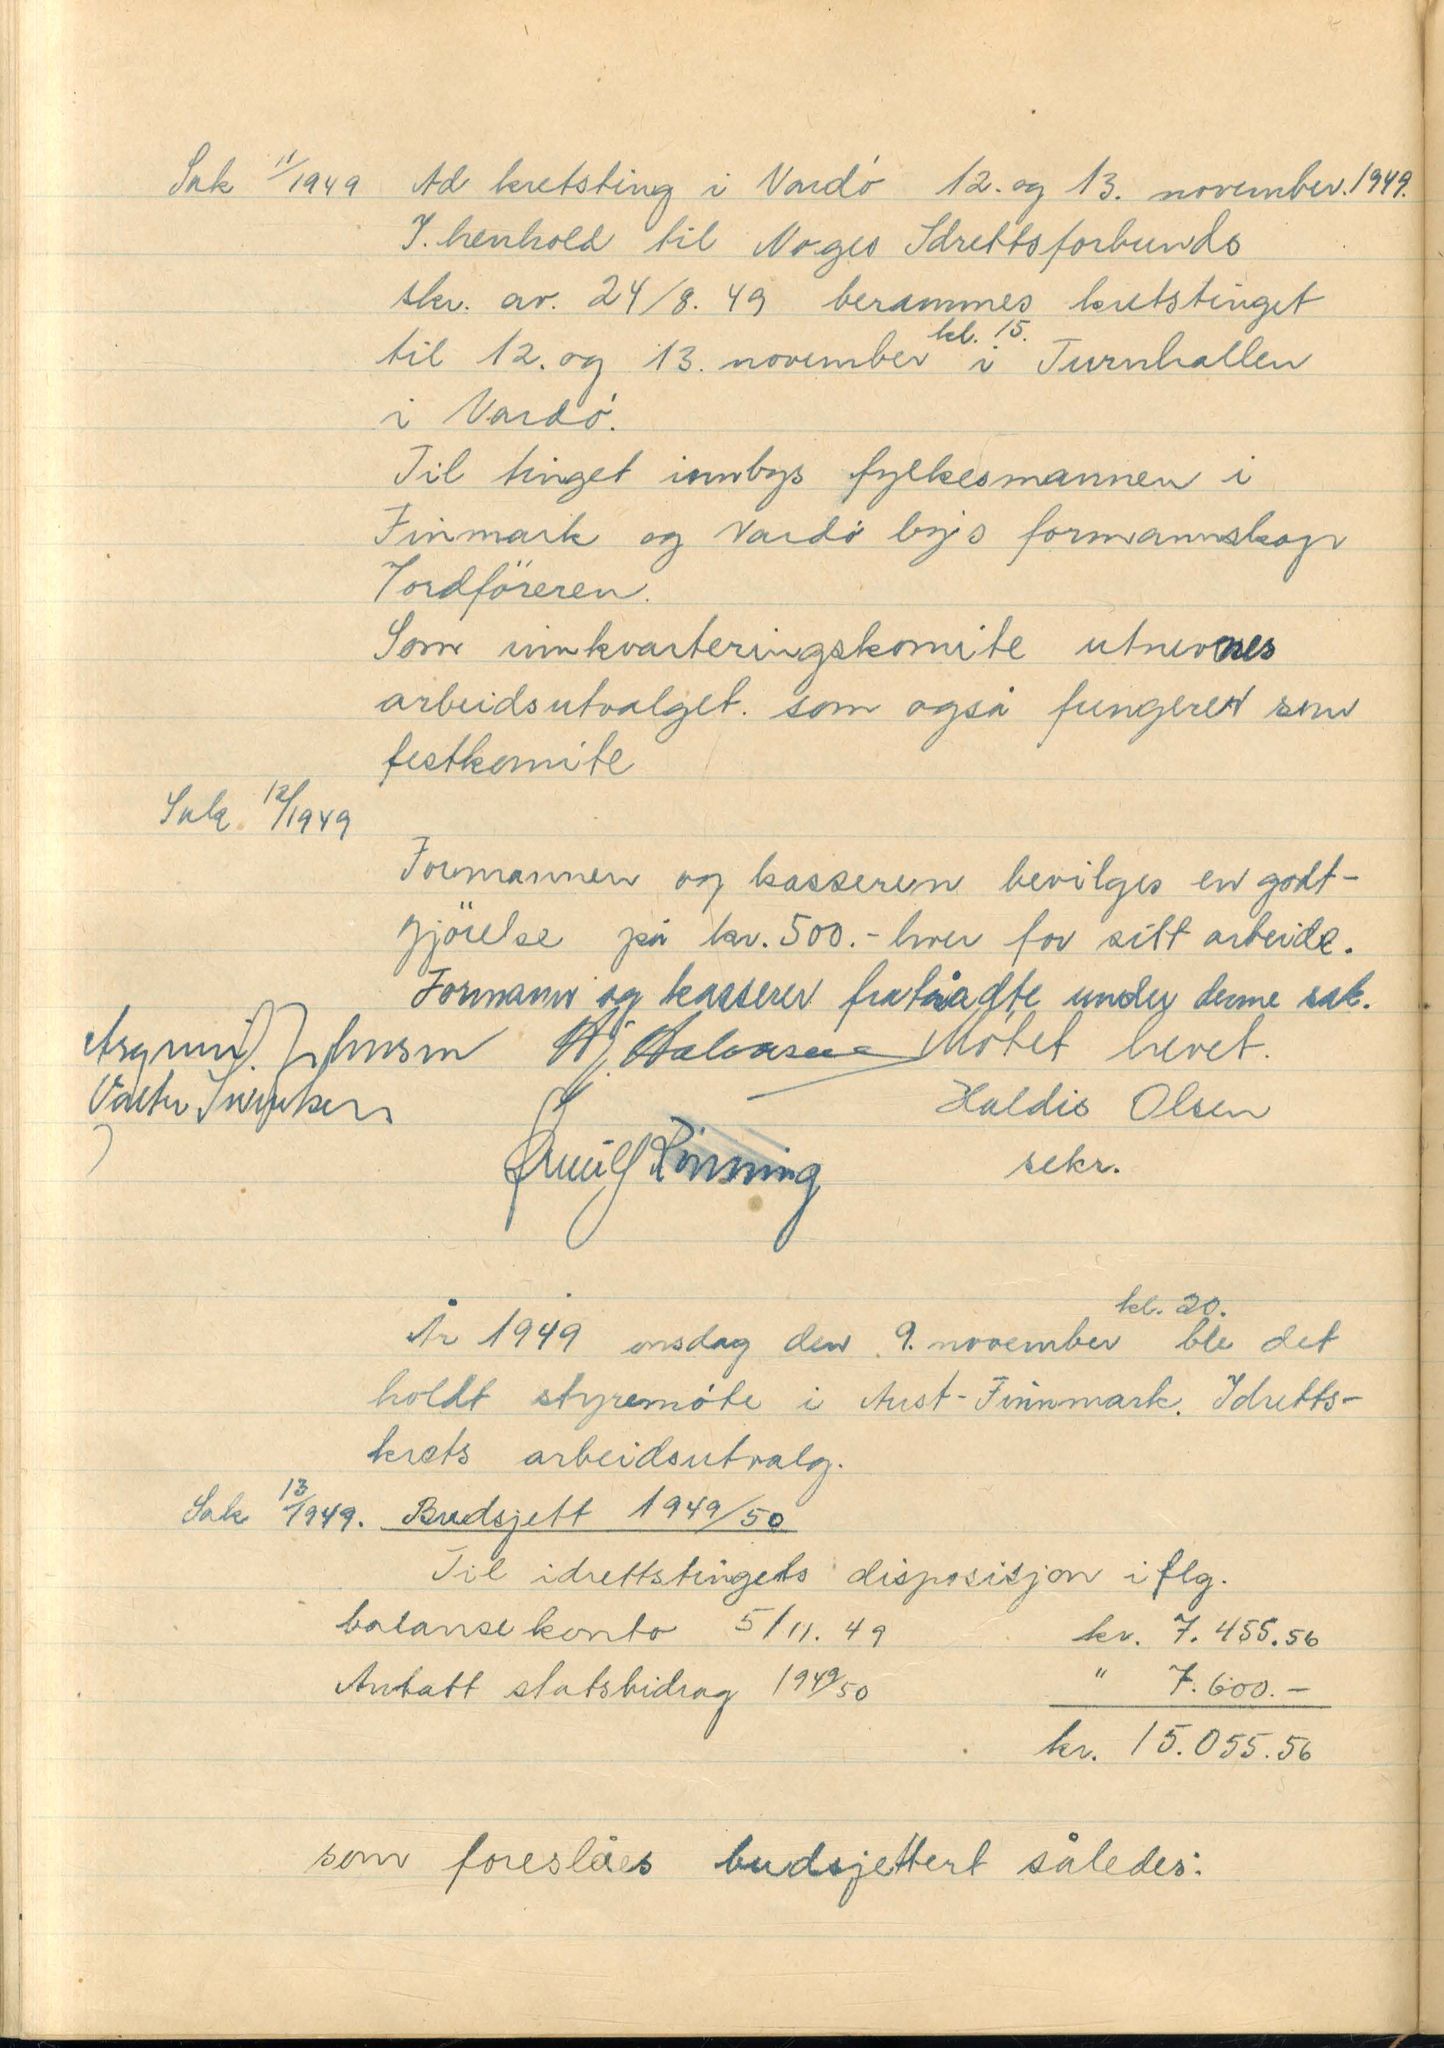 Sak 11/1949 Ad kretsting i Vardó 12. og 13. november. 1949.
I. henhold til Noges Idrettsforbunds
skr. av. 24/8. 49 berammes kretstinget
til 12. og 13. november kl. 15. i Turnhallen
i Vardó.
Til tinget innbys fylkesmannen i
Finmark og Vardó bys formannskap
Vordföreren.
Som innkvarteringskomite utnevnes
arbeidsutvalget. som også fungerer som
festkomite
Sak 12/1949
Formannen og kasseren bevilges en godt-
gjörelse på kr. 500.- hver for sitt arbeide.
Formann og kasserer fratrådte under denne sak.
Johnsen Halvorsen Mötet hevet.
Haldis Olsen
Rönning
sekr.
År 1949 onsdag den 9. november kl. 20. ble det
holdt styremóte i Aust-Finnmark. Idretts-
krets arbeidsutvalg.
Sak 13/1949. Budsjett 1949/50
Til idrettstingets disposisjon iflg.
balansekonto 5/11. 49 kr. 7.455.56
Antatt statsbidrag 1949/50 " 7.600.-
kr. 15.055.56
som foreslåes budsjettert således: